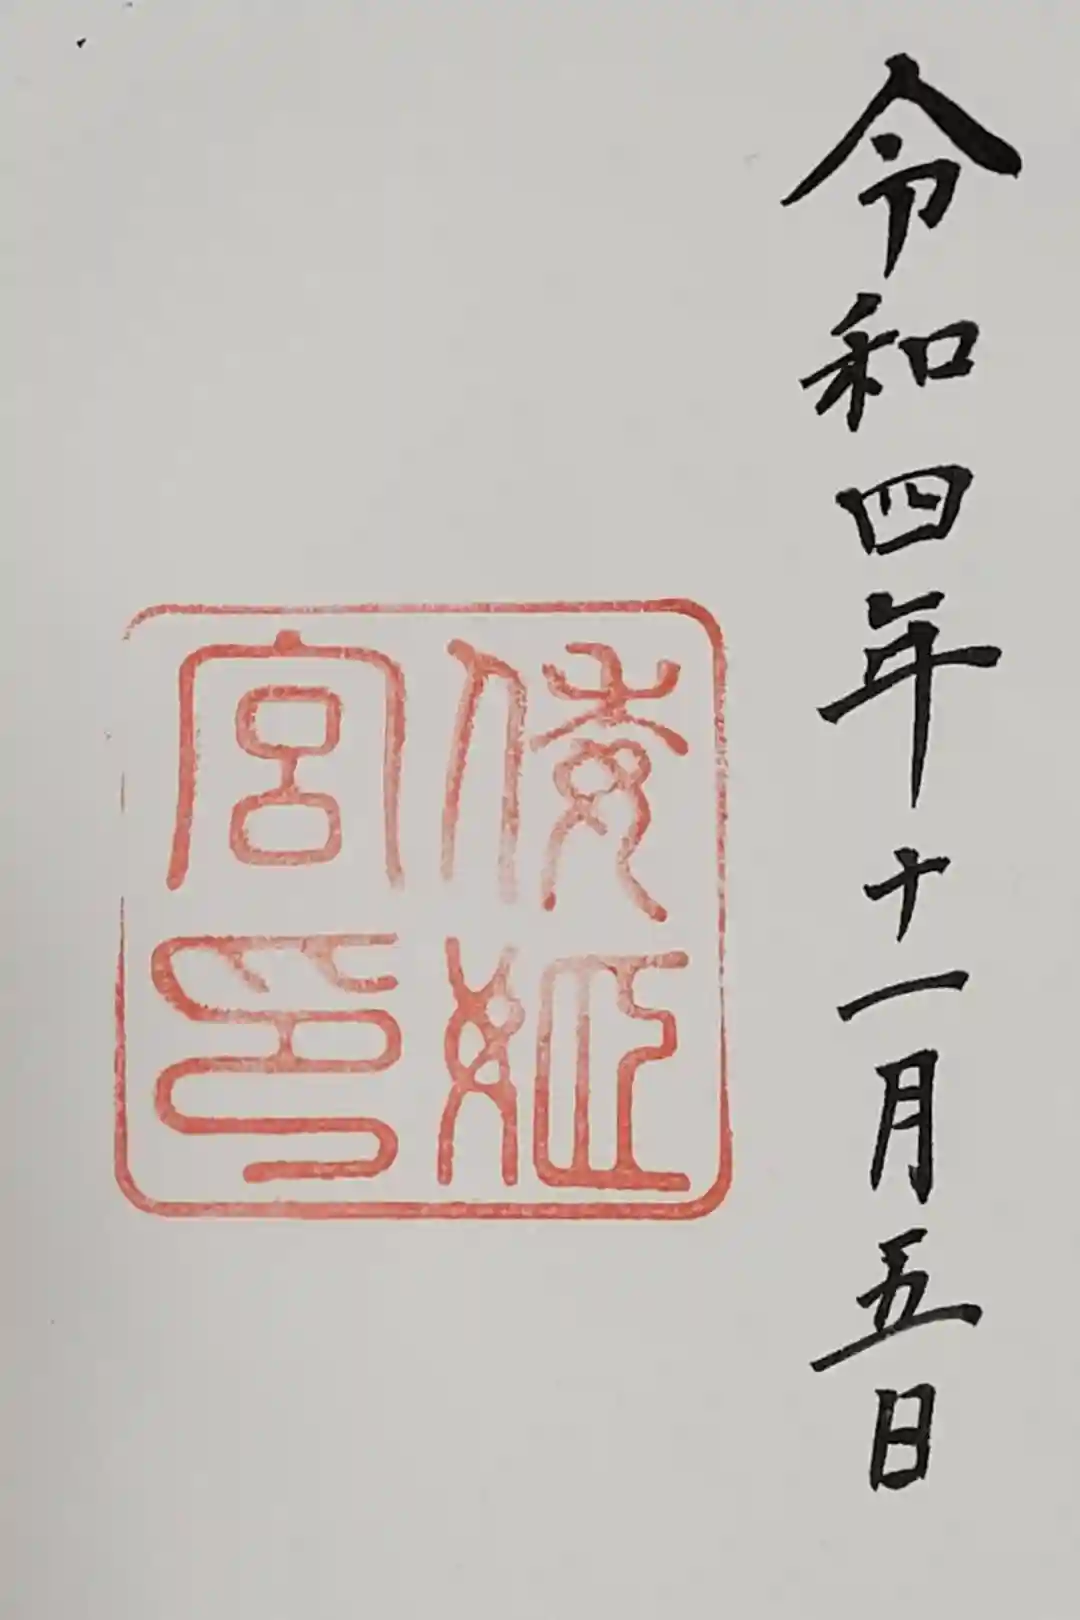 令和四年十一月五日
倭姫
宮印